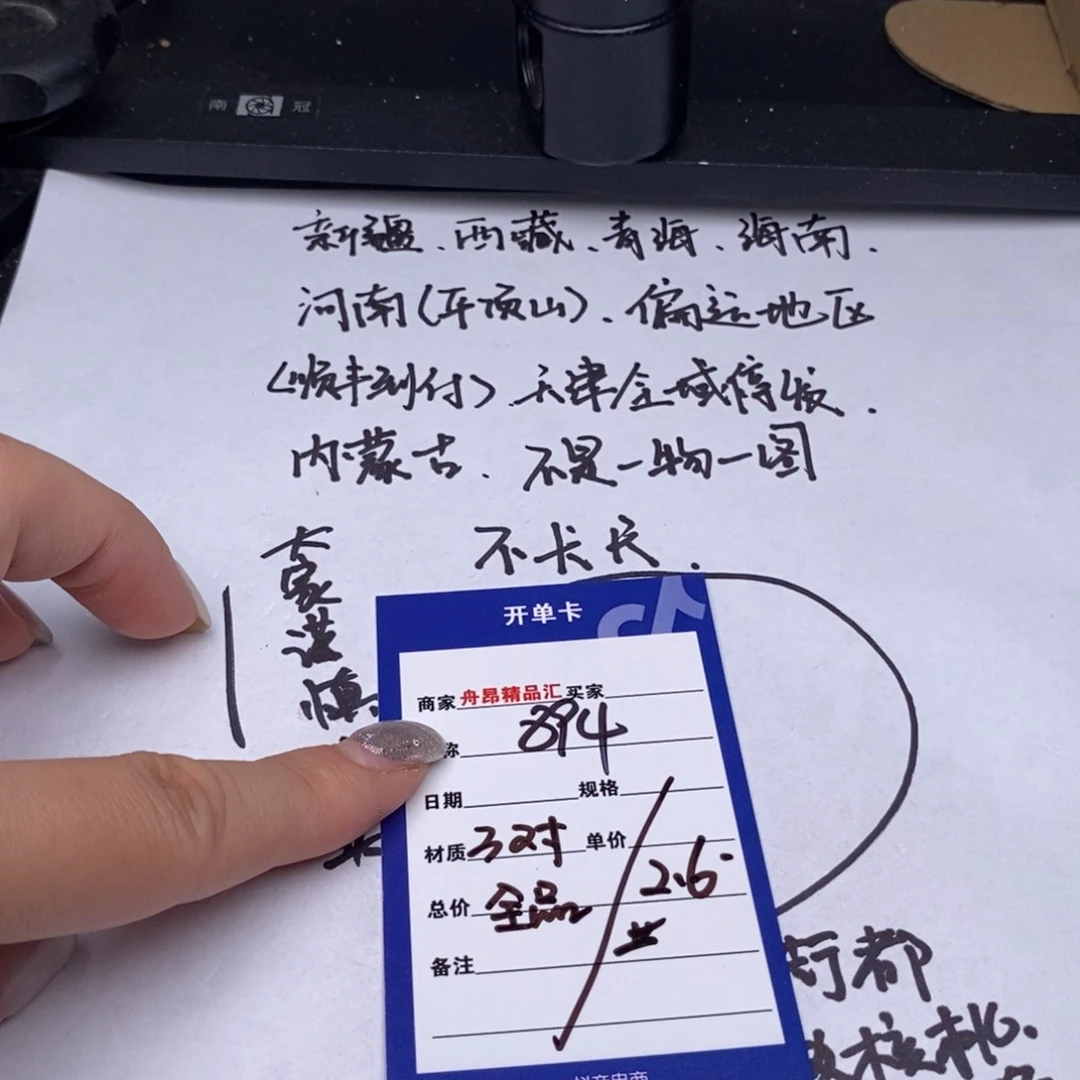 南 冠
新疆、西藏、青海、海南.
河南(平顶山)、偏远地区
(顺丰到付)天津全域停发.
内蒙古、不是一物一图
不卡尺.
大家谨慎
开单卡
商家 舟昂精品汇 买家
894
日期 规格
材质 3对 单价
2.6
总价 全品
备注
都
核桃.
抖音电商